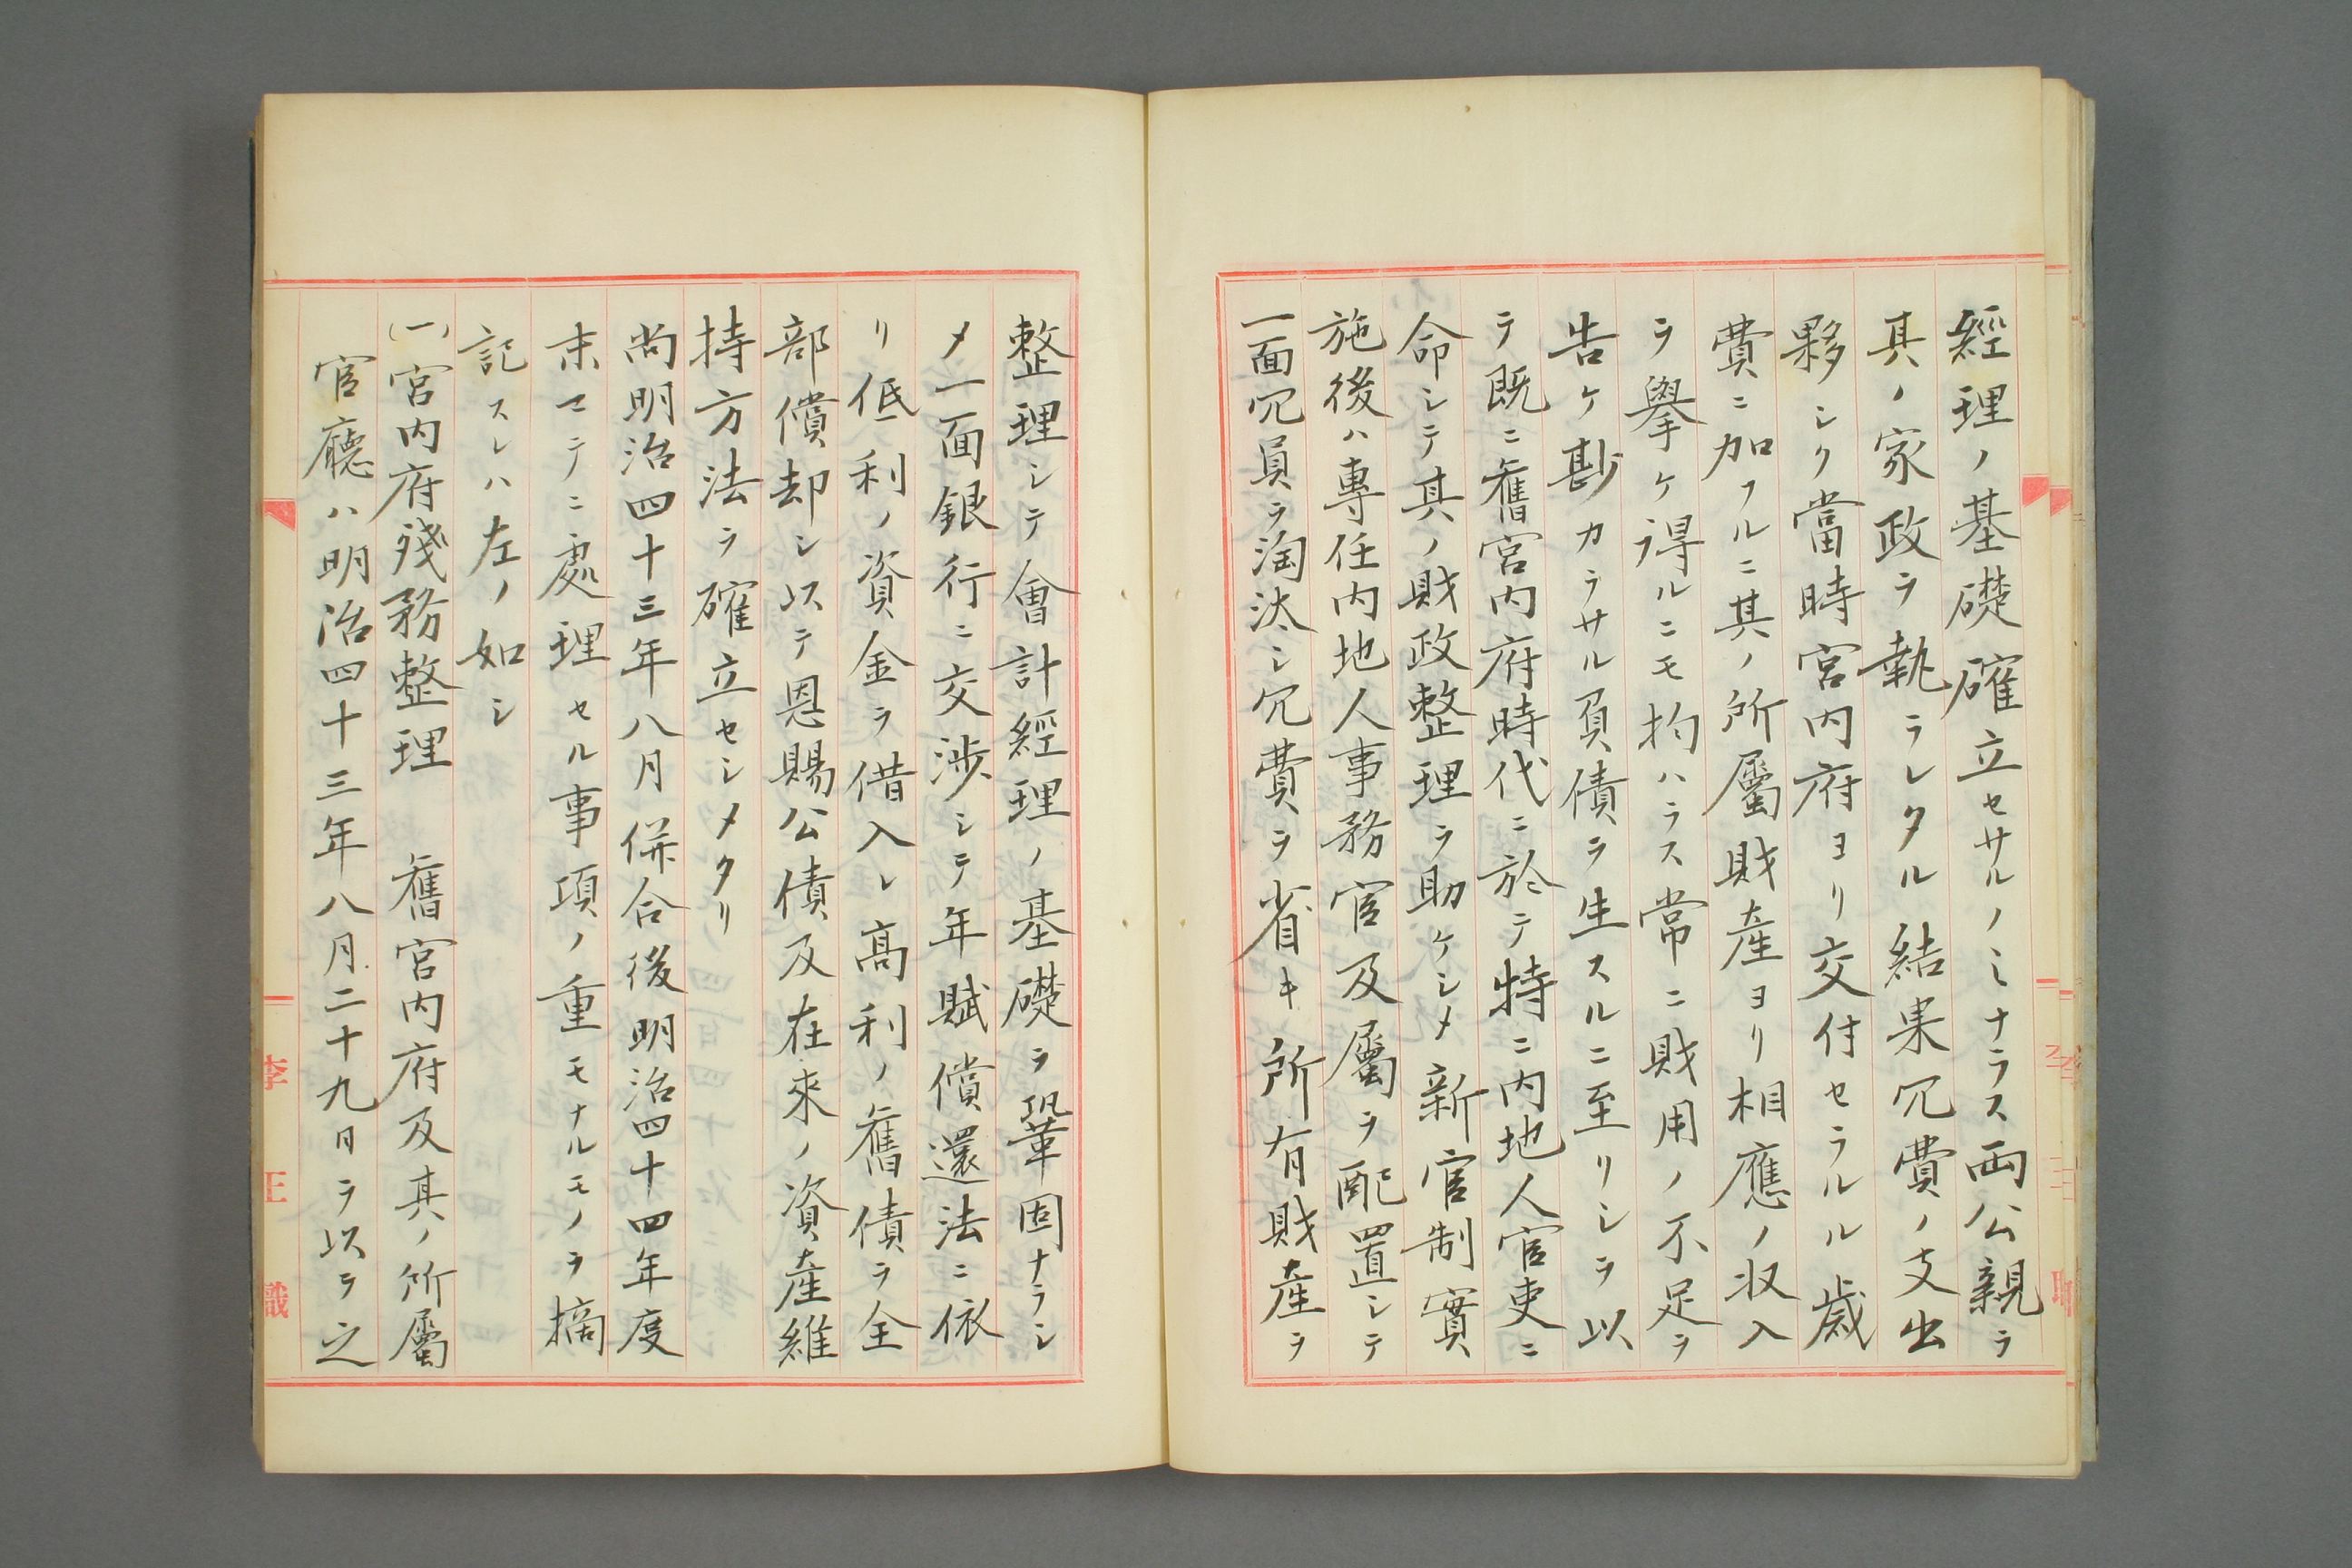 經理ノ基礎確立セサルノミナラス両公親ラ
其ノ家政ヲ執ラレタル結果冗費ノ支出
夥シク當時宮内府ヨリ交付セラルル歳
費ニ加フルニ其ノ所屬財產ヨリ相應ノ収入
ヲ擧ケ得ルニモ拘ハラス常ニ財用ノ不足ヲ
告ケ尠カラサル負債ヲ生スルニ至リシヲ以
テ既ニ舊宮内府時代ニ於テ特ニ内地人官吏ニ
命シテ其ノ財政整理ヲ助ケシメ新官制實
施後ハ專任内地人事務官及屬ヲ配置シテ
一面冗員ヲ淘汰シ冗費ヲ省キ所有財產ヲ
整理シテ會計經理ノ基礎ヲ鞏固ナラシ
メ一面銀行ニ交渉シテ年賦償還法ニ依
リ低利ノ資金ヲ借入レ高利ノ舊債ヲ全
部償却シ以テ恩賜公債及在來ノ資產維
持方法ヲ確立セシメタリ
尚明治四十三年八月併合後明治四十四年度
末マテニ處理セル事項ノ重モナルモノヲ摘
記スレハ左ノ如シ
(一)宮内府殘務整理 舊宮内府及其ノ所屬
官廳ハ明治四十三年八月二十九日ヲ以テ之
李王職